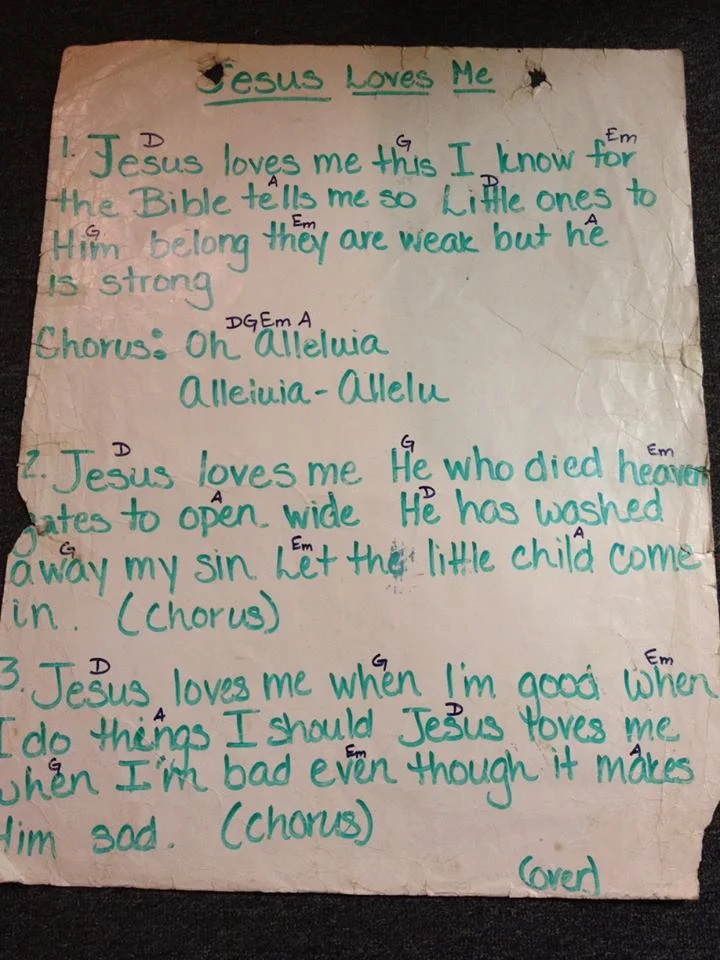 Jesus Loves Me
D G Em
1. Jesus loves me this I know for
A D
the Bible tells me so Little ones to
G Em A
Him belong they are weak but he
is strong
D G Em A
Chorus: Oh Alleluia
Alleluia - Allelu
D G Em
2. Jesus loves me He who died heaven
A D
gates to open wide He has washed
G Em A
away my sin Let the little child come
in. (Chorus)
D G Em
3. Jesus loves me when I'm good when
A D
I do things I should Jesus loves me
G Em A
when I'm bad even though it makes
Him sad. (Chorus)
(over)